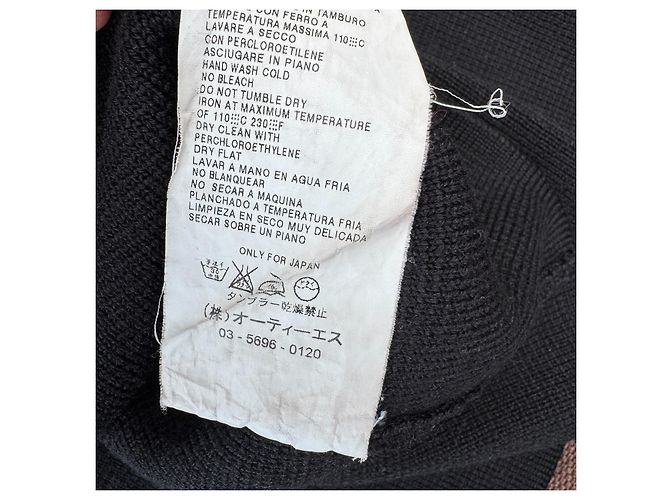 IN TAMBURO
CON FERRO A
TEMPERATURA MASSIMA 110⁝⁝⁝C
LAVARE A SECCO
CON PERCLOROETILENE
ASCIUGARE IN PIANO
HAND WASH COLD
NO BLEACH
DO NOT TUMBLE DRY
IRON AT MAXIMUM TEMPERATURE
OF 110⁝⁝⁝C 230⁝⁝⁝F
DRY CLEAN WITH
PERCHLOROETHYLENE
DRY FLAT
LAVAR A MANO EN AGUA FRIA
NO BLANQUEAR
NO SECAR A MAQUINA
PLANCHADO A TEMPERATURA FRIA
LIMPIEZA EN SECO MUY DELICADA
SECAR SOBRE UN PIANO
ONLY FOR JAPAN
タンブラー乾燥禁止
(株)オーティーエス
03-5696-0120